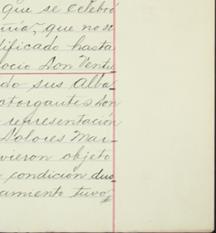 que se celebró
que no se
dificado hasta
ocio Don Ventu
do sus Alba
otorgantes Don
representación
Dolores Mar
vieron objeto
condición dus
camento tuvo,